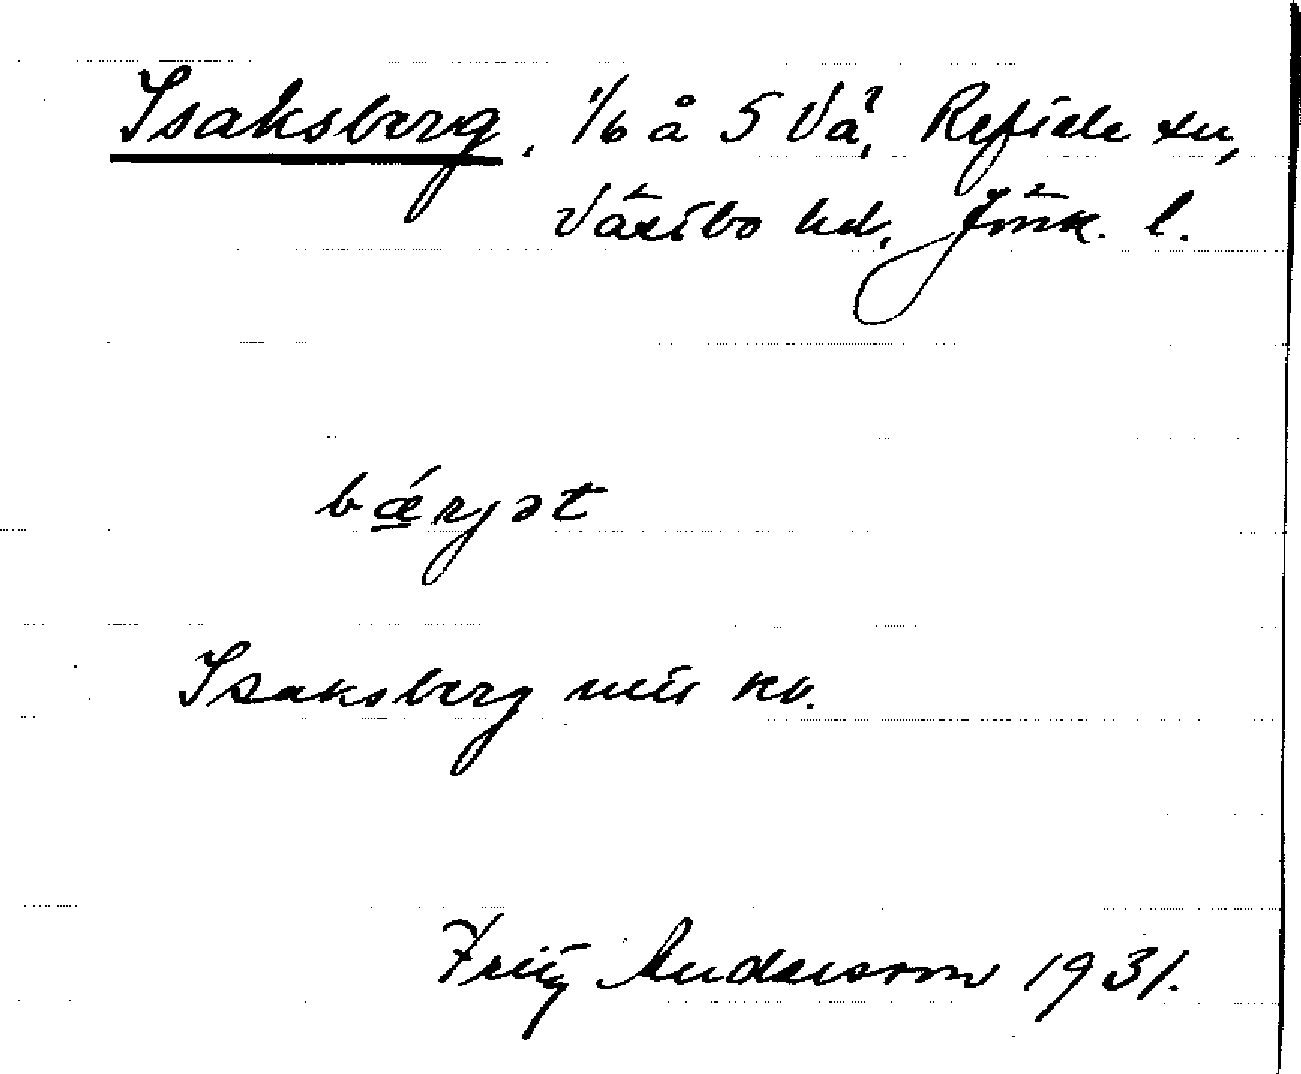 Isaksberg, 1/6 å 5 Vå, Reftele sn,
Västbo hd, Jönk. l.
bǽrjət
Isaksberg nur kv.
Fritz Andersson 1931.